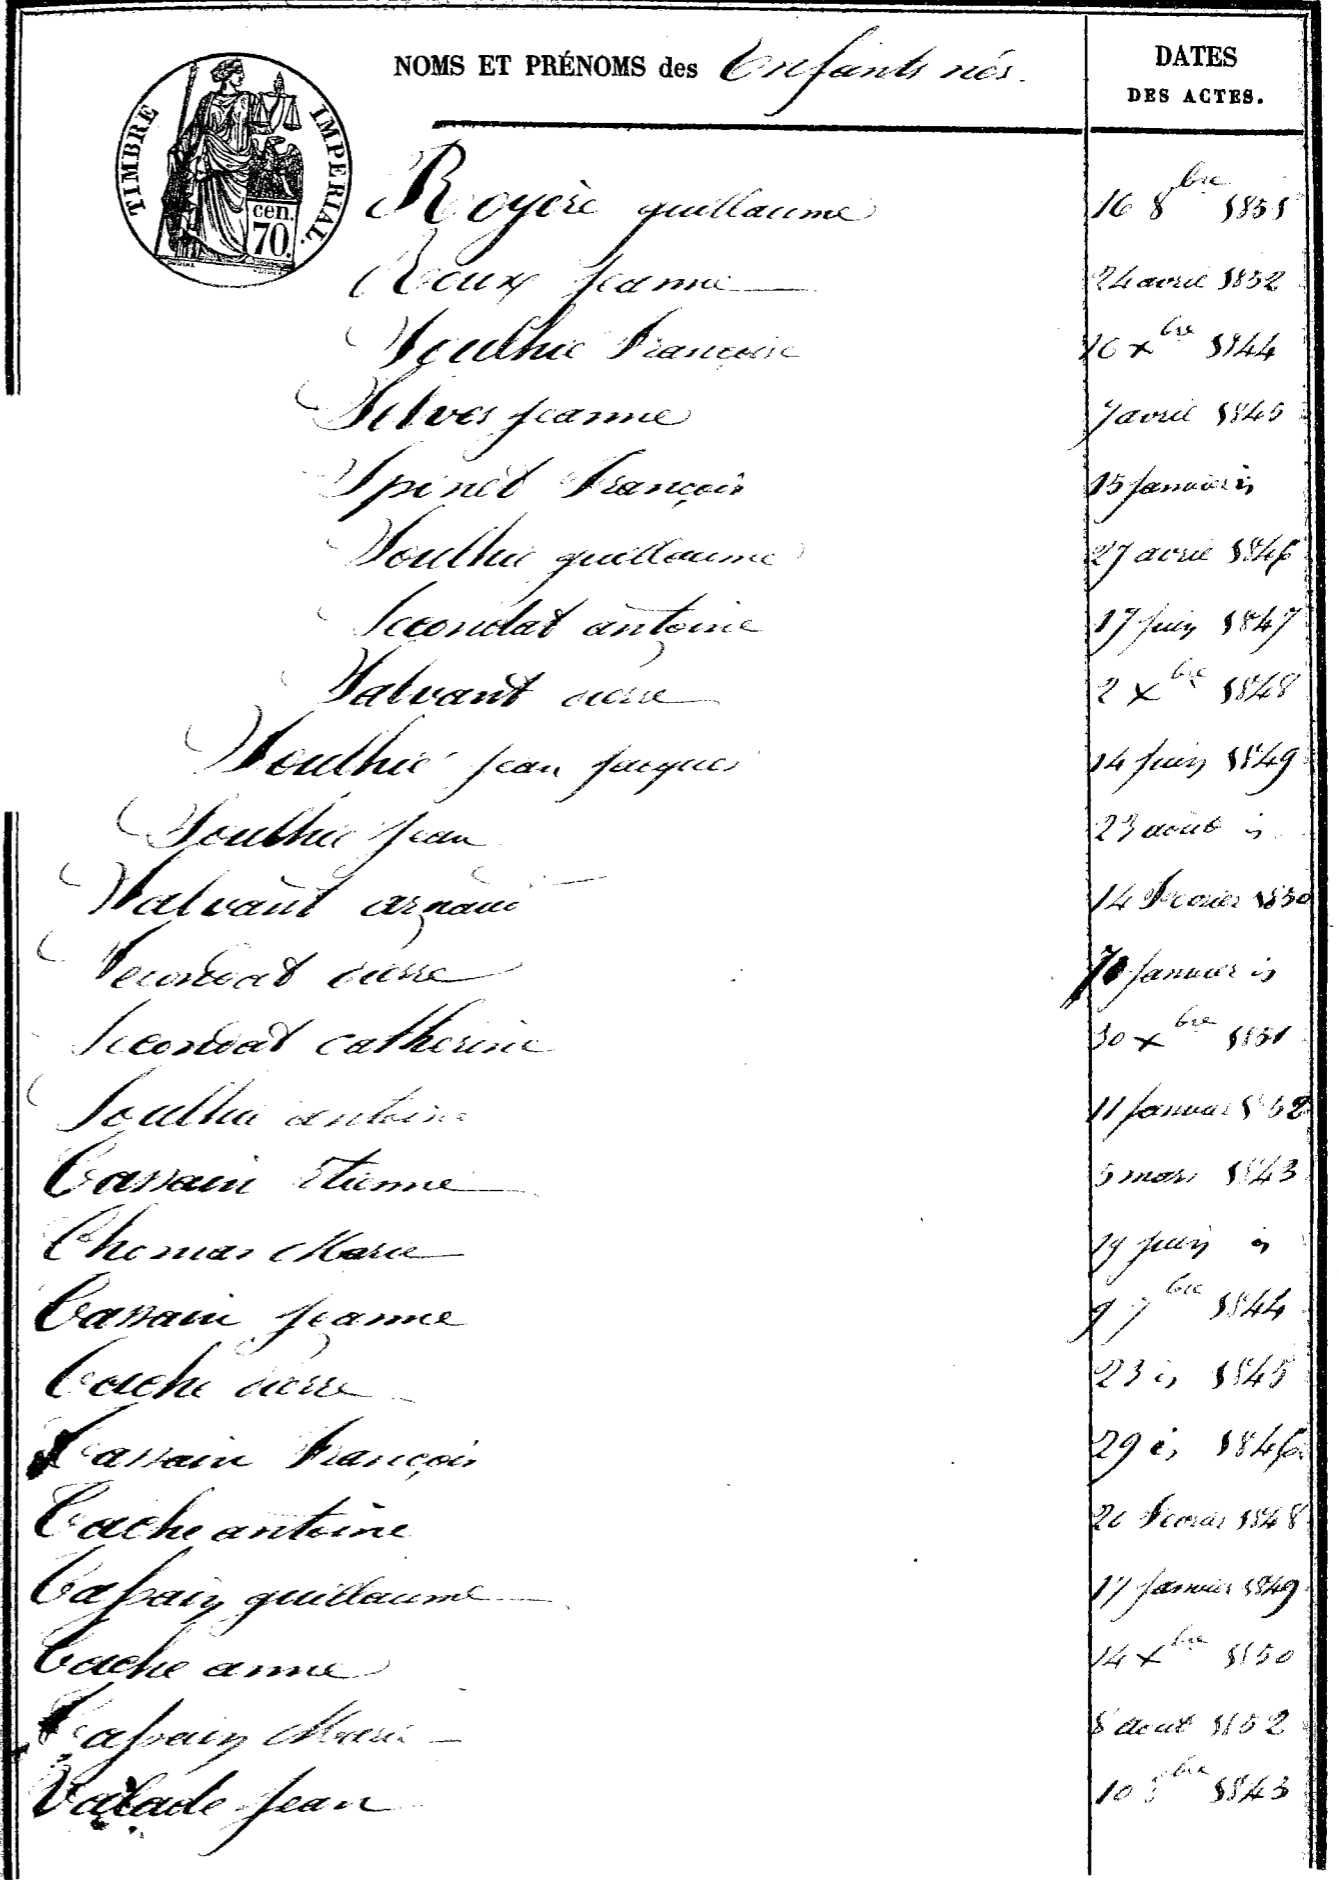 NOMS ET PRÉNOMS des Enfants nés.
DATES
DES ACTES.
TIMBRE IMPERIAL.
cen.
70.
Royère guillaume 16 8bre 1851
Roux jeanne 24 avril 1852
Soulhié Françoise 16 xbre 1844
Selves jeanne 7 avril 1845
Spinet François 15 janvier is
Soulhié guillaume 27 avril 1846
Secondat antoine 17 juin 1847
Salvant pierre 2 xbre 1848
Soulhié jean jacques 14 juin 1849
Soulhié jean 23 août is
Salvant arnaud 14 Fevrier 1850
Secondat pierre janvier is
Secondat catherine 30 xbre 1851
Soulhié antoine 11 janvier 1852
Tassain Etienne 5 mars 1843
Thomas Marie 19 juin is
Tassain jeanne 9 7bre 1844
Tache pierre 23 is 1845
Tassain François 29 is 1846
Tache antoine 20 Fevrier 1848
Tassain guillaume 17 janvier 1849
Tache anne 14 xbre 1850
Tassain Marie 8 aout 1852
Valade jean 10 bre 1843